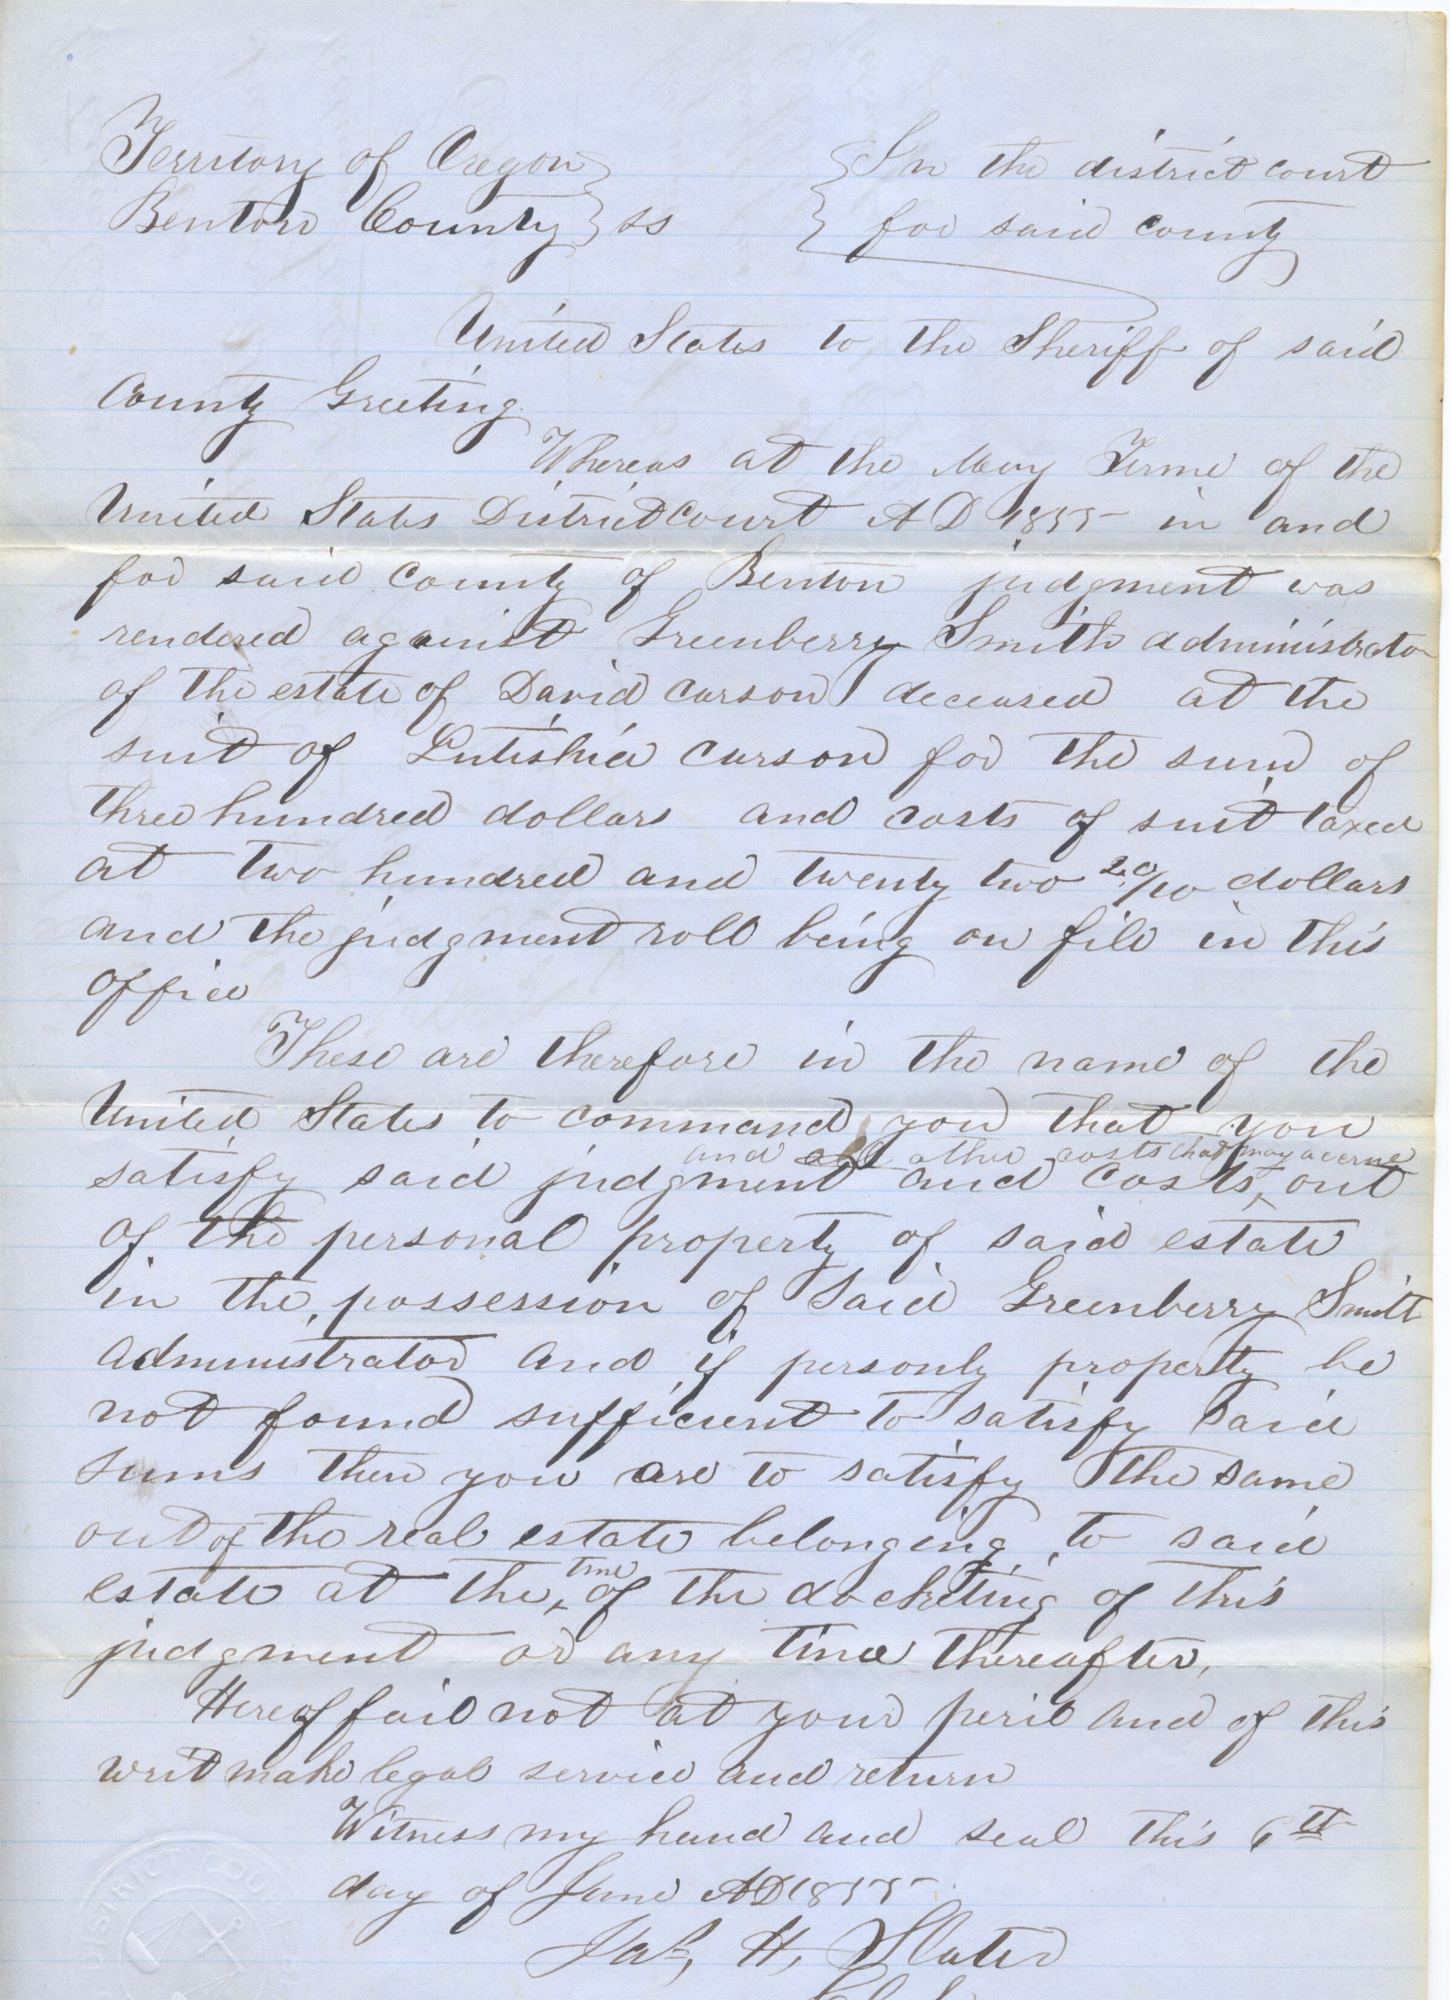 Territory of Oregon } { In the district court
Benton County } ss { for said county
United States to the Sheriff of said
County Greeting
Whereas at the May Terme of the
United States District court A D 1855 in and
for said County of Benton judgment was
rendered against Greenberry Smith administrator
of the estate of David Carson deceased at the
suit of Lutishia Carson for the sum of
three hundred dollars and costs of suit taxed
at two hundred and twenty two 20/10 dollars
and the judgment roll being on file in this
office
These are therefore in the name of the
United States to command you that you
and other costs that may accrue
satisfy said judgment and costs, out
of the personal property of said estate
in the possession of Said Greenberry Smith
administrator and if personly property be
not found sufficient to satisfy said
sums then you are to satisfy the same
out of the real estate belonging to said
time
estate at the of the docketing of this
judgment or any time thereafter,
Hereof fail not at your peril and of this
writ make legal service and return
Witness my hand and seal this 6th
day of June AD 1855
Jas, H, Slater
DISTRICT COURT